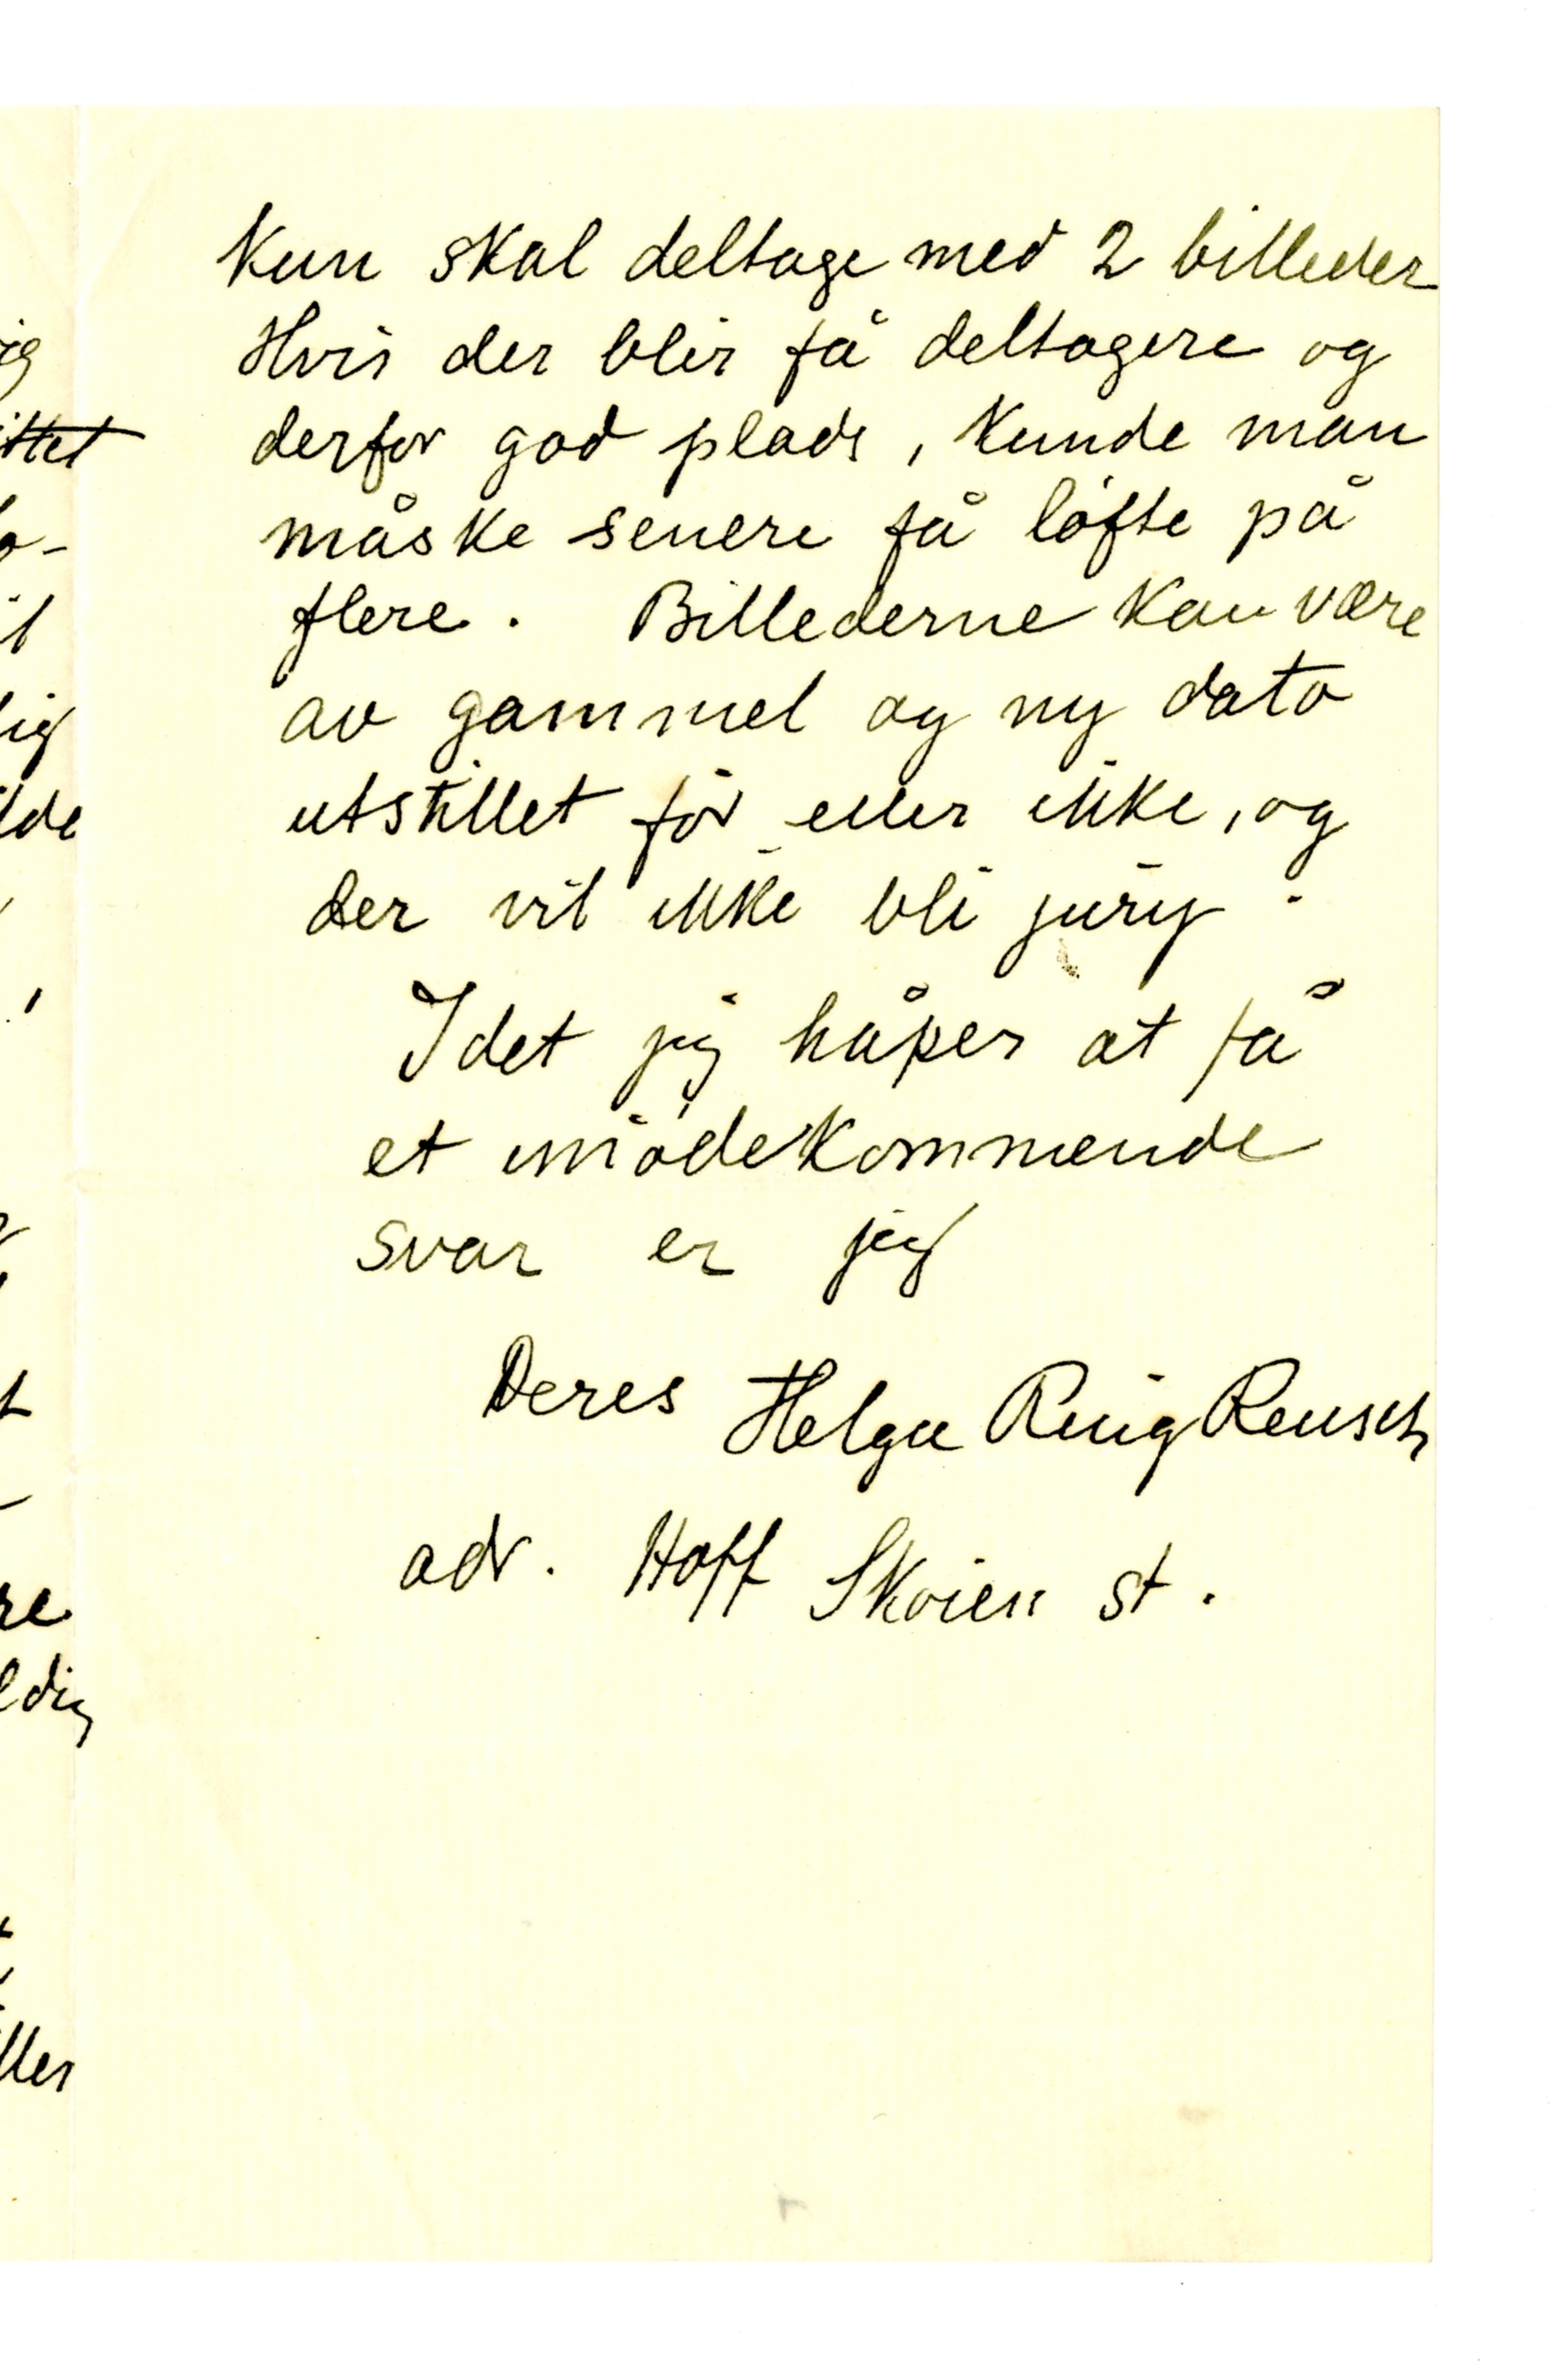 kun skal deltage med 2 billeder
Hvis der blir få deltagere og
derfor god plads, kunde man
måske senere få løfte på
flere. Billederne kan være
av gammel og ny dato
utstillet før eller ikke, og
der vil ikke bli jury.
Idet jeg håper at få
et imødekommende
svar er jeg
Deres Helga Ring Reusch
adr. Hoff Skøien st.